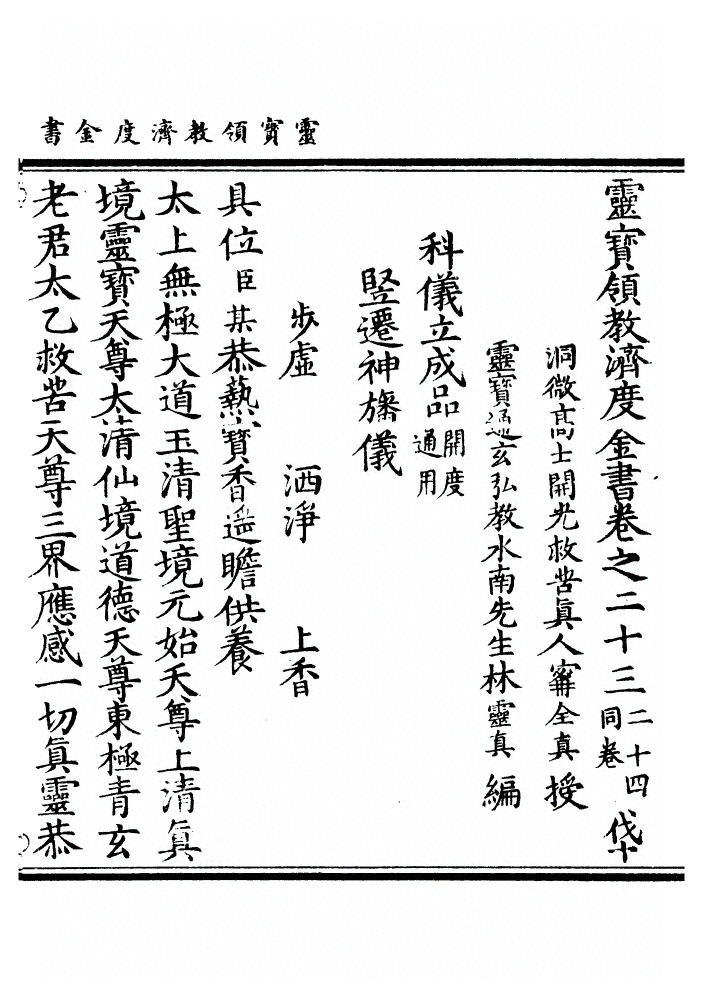 靈寶領教濟度金書
靈寶領教濟度金書卷之二十三二十四同卷 岱十
洞微高士開光救苦真人甯全真 授
靈寶通玄弘教水南先生林靈真 編
科儀立成品開度通用
豎遷神旛儀
步虛 洒淨 上香
具位臣某恭爇寶香遥瞻供養
太上無極大道玉清聖境元始天尊上清真
境靈寶天尊太清仙境道德天尊東極青玄
老君太乙救苦天尊三界應感一切真靈恭